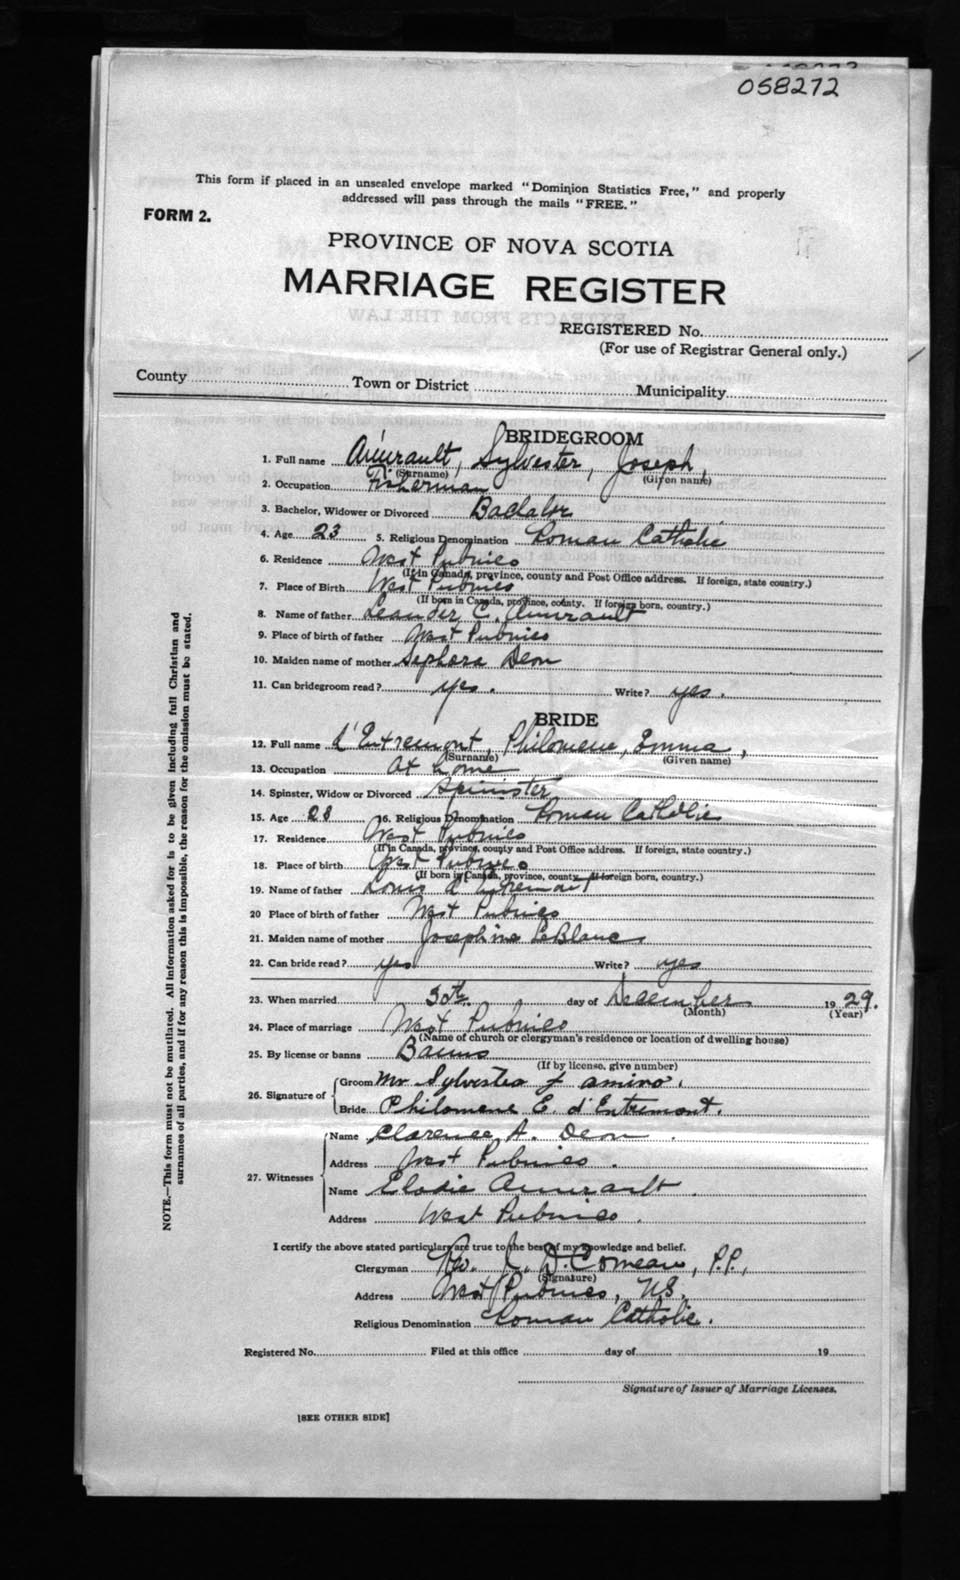 058272
This form if placed in an unsealed envelope marked "Dominion Statistics Free," and properly
addressed will pass through the mails "FREE."
FORM 2.
PROVINCE OF NOVA SCOTIA
MARRIAGE REGISTER
REGISTERED No.
(For use of Registrar General only.)
County Town or District Municipality
BRIDEGROOM
1. Full name Amirault, Sylvester, Joseph,
(Surname) (Given name)
2. Occupation Fisherman
3. Bachelor, Widower or Divorced Bachalor
4. Age 23 5. Religious Denomination Roman Catholic
6. Residence West Pubnico
(If in Canada, province, county and Post Office address. If foreign, state country.)
7. Place of Birth West Pubnico
(If born in Canada, province, county. If foreign born, country.)
8. Name of father Leander C. Amirault
9. Place of birth of father West Pubnico
10. Maiden name of mother Sephora Deon
11. Can bridegroom read? yes. Write? yes.
BRIDE
12. Full name d'Entremont, Philomene, Emma,
(Surname) (Given name)
13. Occupation At home
14. Spinster, Widow or Divorced Spinister
15. Age 16. Religious Denomination Roman Catholic
17. Residence West Pubnico
(If in Canada, province, county and Post Office address. If foreign, state country.)
18. Place of birth West Pubnico
(If born in Canada, province, county. If foreign born, country.)
19. Name of father Louis d'Entremont
20 Place of birth of father West Pubnico
21. Maiden name of mother Josephine LeBlanc
22. Can bride read? yes Write? yes
23. When married 30th day of December 1929.
(Month) (Year)
24. Place of marriage West Pubnico
(Name of church or clergyman's residence or location of dwelling house)
25. By license or banns Banns
(If by license, give number)
26. Signature of Groom Mr Sylvester J amiro.
Bride Philomene E. d'Entremont.
27. Witnesses Name Clarence A. Deon.
Address West Pubnico.
Name Elodie Amirault.
Address West Pubnico.
I certify the above stated particulars are true to the best of my knowledge and belief.
Clergyman Rev. J. D. Comeau, P.P.,
(Signature)
Address West Pubnico, N.S.
Religious Denomination Roman Catholic.
Registered No. Filed at this office day of 19
Signature of Issuer of Marriage Licenses.
[SEE OTHER SIDE]
NOTE.—This form must not be mutilated. All information asked for is to be given including full Christian and
surnames of all parties, and if for any reason this is impossible, the reason for the omission must be stated.